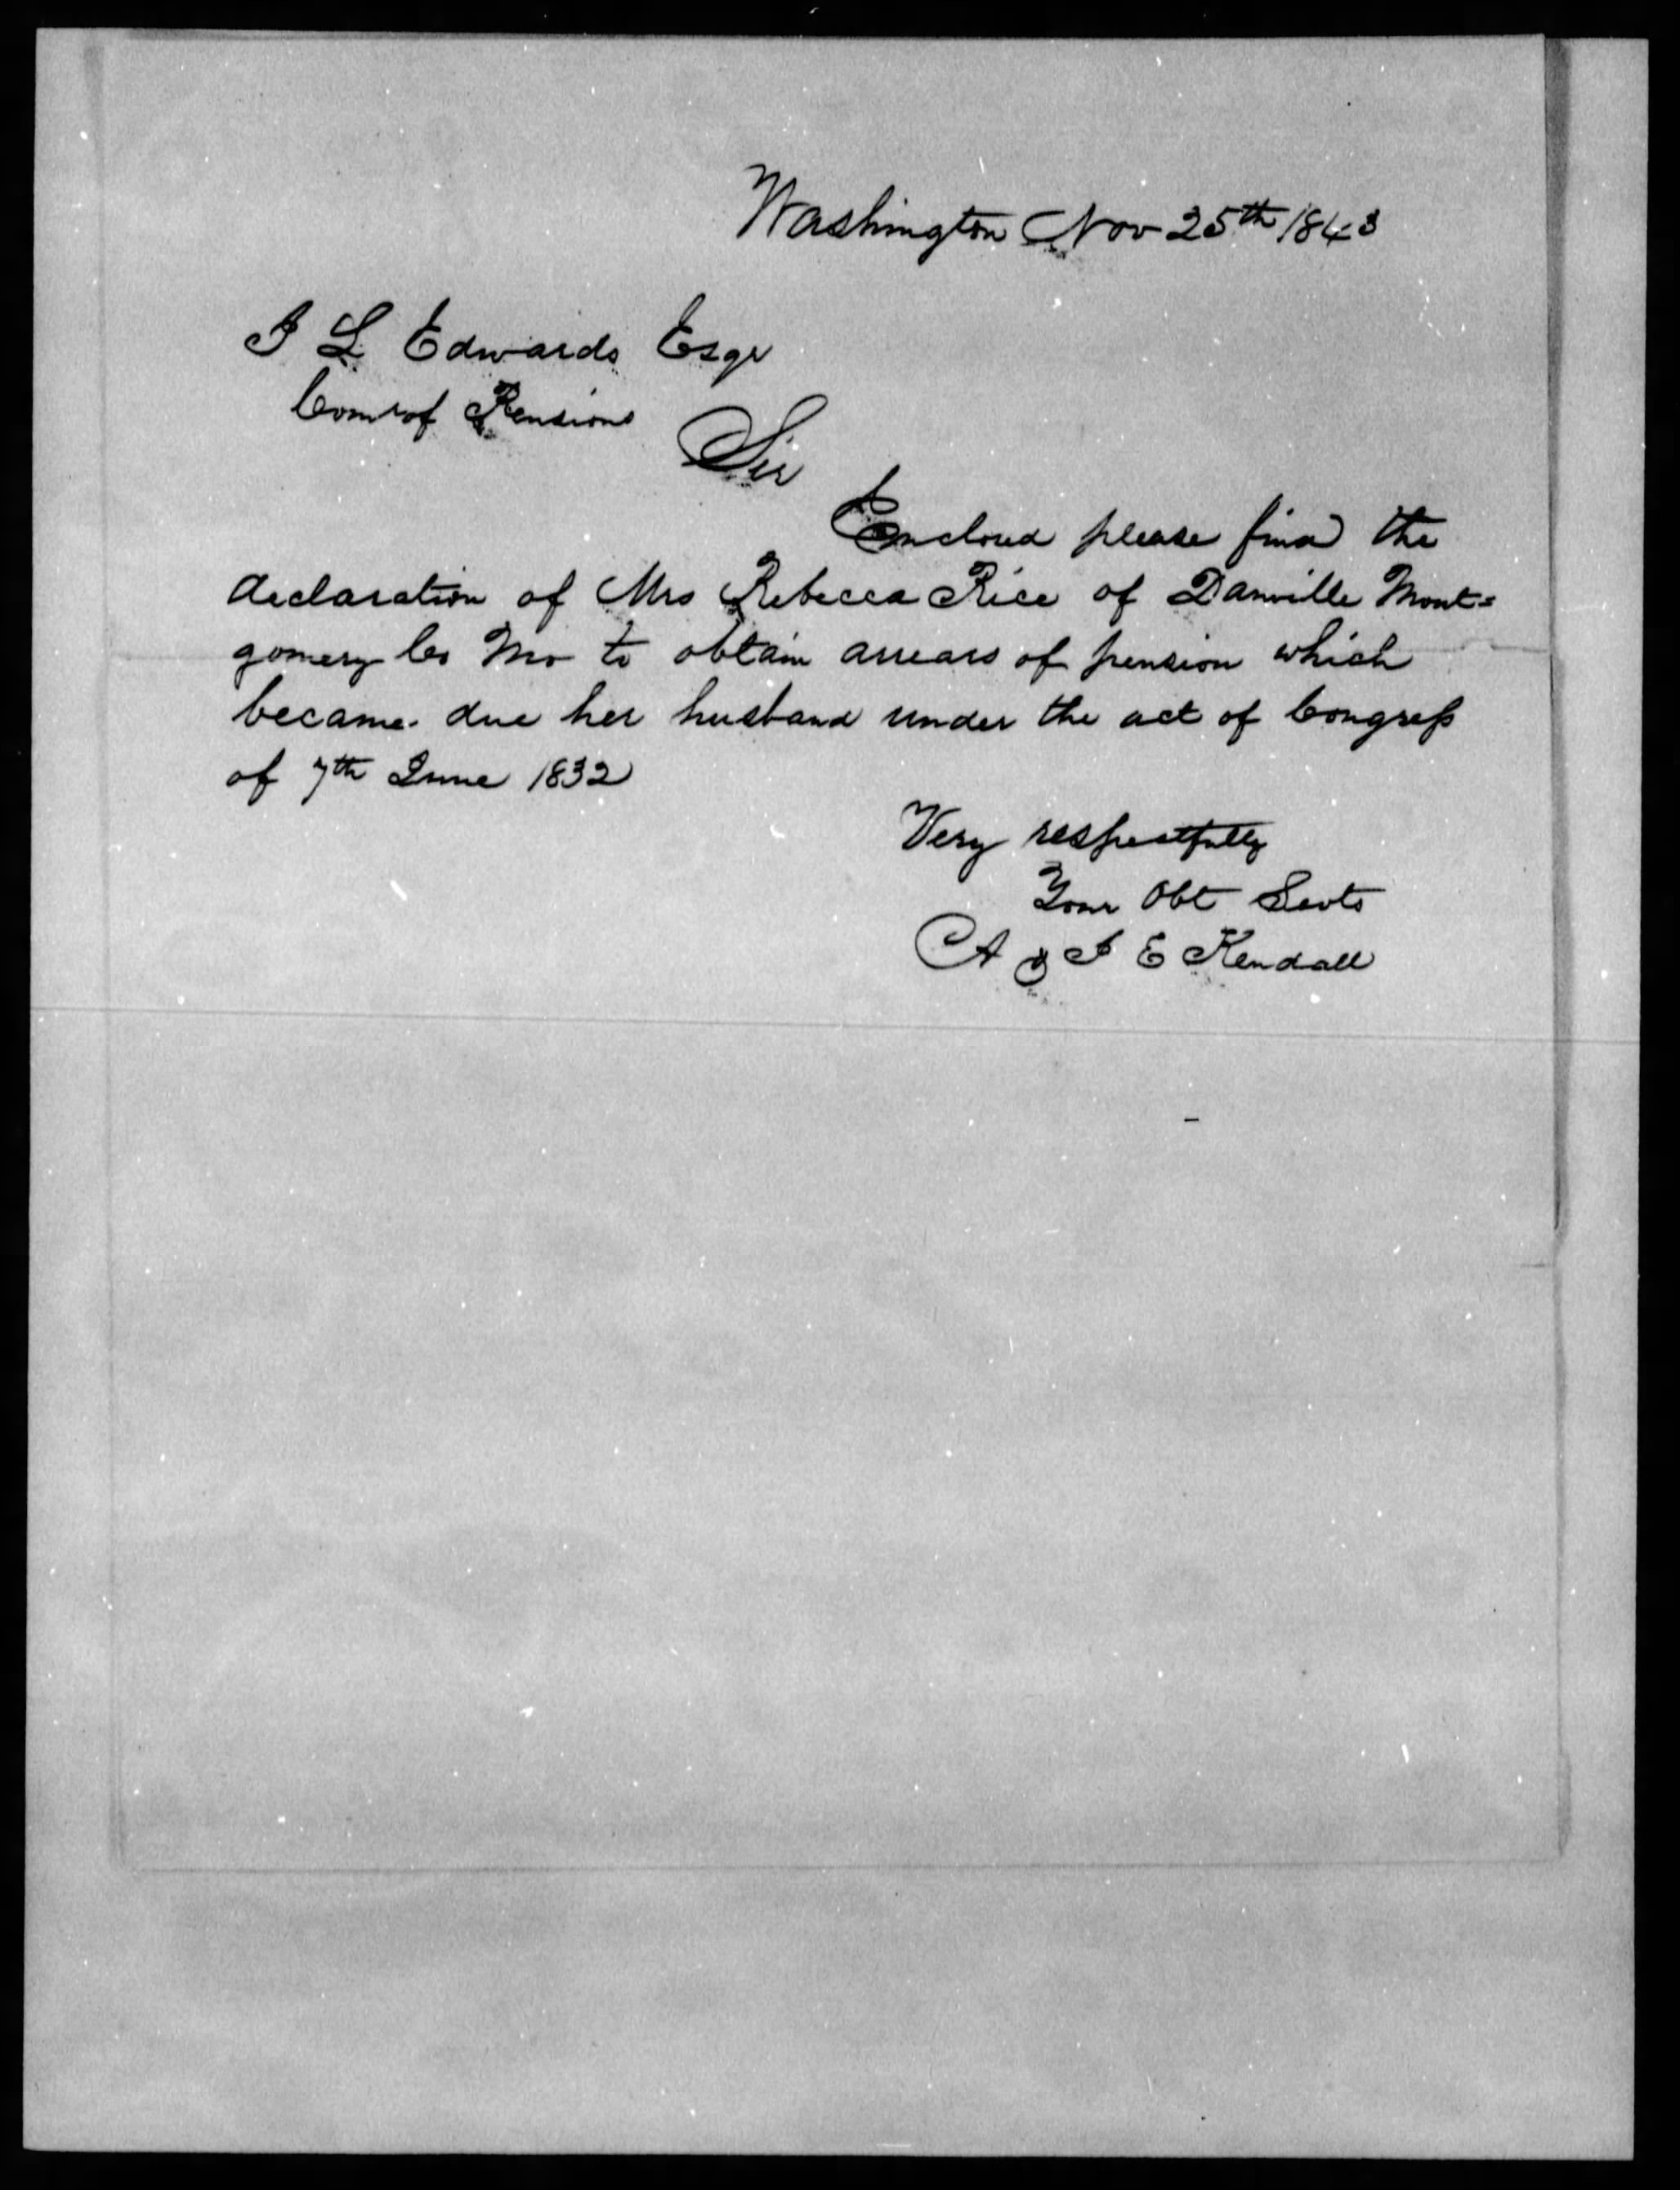 Washington Nov 25th 1843
J L Edwards Esqr
Comr of Pensions
Sir
Enclosed please find the
declaration of Mrs Rebecca Rice of Danville Mont=
gomery Co Mo to obtain arrears of pension which
became due her husband under the act of Congress
of 7th June 1832
Very respectfully
Your Obt Servts
A & J E Kendall